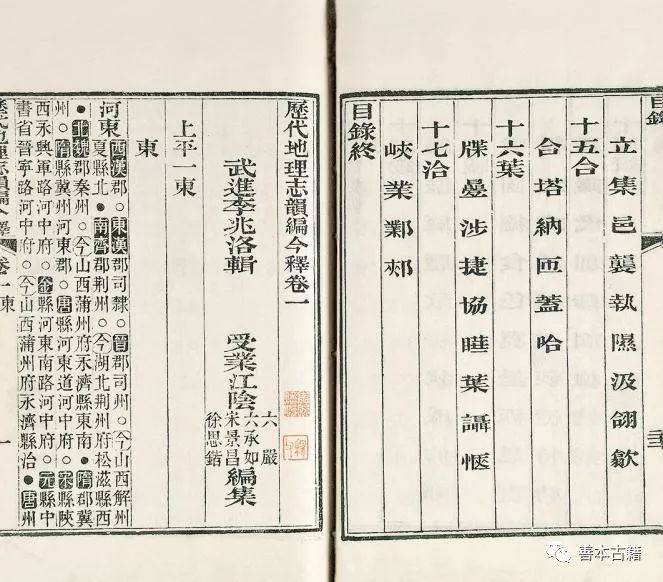 目錄
立集邑襲執隰汲翖歙
十五合
合塔納匝蓋哈
十六葉
牒曡涉捷協葉讘愜
十七洽
峽業鄴郟
目錄終
歷代地理志韻編今釋卷一
武進李兆洛輯 受業江陰 六嚴 六承如 宋景昌 徐思鍇 編集
上平一東
東
河東 西漢郡○東漢郡司隸○晉郡司州○今山西解州
夏縣北●南齊郡荊州○今湖北荊州府松滋縣西
●北魏郡秦州○今山西蒲州府永濟縣東南●隋郡冀
州○隋縣冀州河東郡○唐縣河東道河中府○宋縣陝
西永興軍路河中府○金縣河東南路河中府○元縣中
書省晉寧路河中府○今山西蒲州府永濟縣治●唐州
歷代地理志韻編今釋 卷一東 一
善本古籍